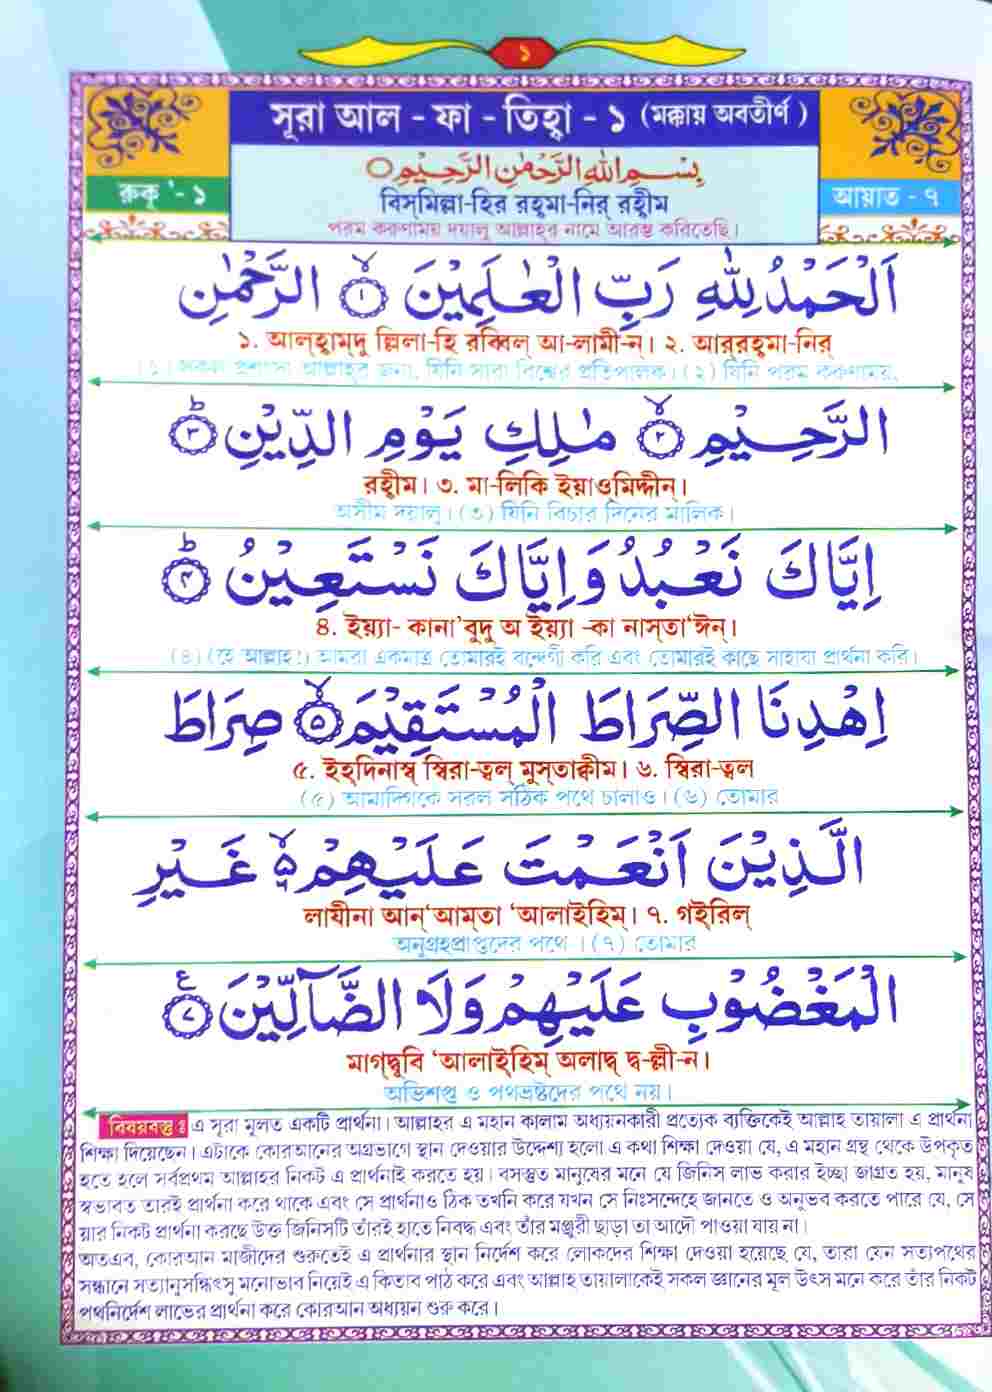 ১
সূরা আল - ফা - তিহ্বা - ১ (মক্কায় অবতীর্ণ)
بِسْمِ اللّٰهِ الرَّحْمٰنِ الرَّحِيْمِ ○
রুকূ ’- ১
বিস্‌মিল্লা-হির রহ্বমা-নির্ রহ্বীম
আয়াত - ৭
পরম করুণাময় দয়ালু আল্লাহর নামে আরম্ভ করিতেছি।
اَلْحَمْدُ لِلّٰهِ رَبِّ الْعٰلَمِيْنَ ۙ‏﴿۱﴾ الرَّحْمٰنِ
১. আল্‌হ্বামদু ল্লিলা-হি রব্বিল্ আ-লামী-ন্। ২. আর্‌রহ্বমা-নির্
(১) সকল প্রশংসা আল্লাহর জন্য, যিনি সারা বিশ্বের প্রতিপালক। (২) যিনি পরম করুণাময়,
الرَّحِيْمِ ۙ‏﴿۲﴾ مٰلِكِ يَوْمِ الدِّيْنِ ؕ‏﴿۳﴾
রহ্বীম। ৩. মা-লিকি ইয়াওমিদ্দীন্।
অসীম দয়ালু। (৩) যিনি বিচার দিনের মালিক।
اِيَّاكَ نَعْبُدُ وَاِيَّاكَ نَسْتَعِيْنُ ؕ‏﴿۴﴾
৪. ইয়্যা- কানা’বুদু অ ইয়্যা -কা নাস্‌তা‘ঈন্।
(৪) (হে আল্লাহ!) আমরা একমাত্র তোমারই বন্দেগী করি এবং তোমারই কাছে সাহায্য প্রার্থনা করি।
اِهْدِنَا الصِّرَاطَ الْمُسْتَقِيْمَ ۙ‏﴿۵﴾ صِرَاطَ
৫. ইহ্‌দিনাস্ব স্বিরা-ত্বল্ মুস্‌তাক্বীম। ৬. স্বিরা-ত্বল
(৫) আমাদিগকে সরল সঠিক পথে চালাও। (৬) তোমার
الَّذِيْنَ اَنْعَمْتَ عَلَيْهِمْ ۙ۬ غَيْرِ
লাযীনা আন্‘আম্‌তা ‘আলাইহিম্। ৭. গইরিল্
অনুগ্রহপ্রাপ্তদের পথে । (৭) তোমার
الْمَغْضُوْبِ عَلَيْهِمْ وَلَا الضَّآلِّيْنَ ﴿۷﴾ ع
মাগ্‌দ্বুবি ‘আলাইহিম্ অলাদ্ব দ্ব-ল্লী-ন।
অভিশপ্ত ও পথভ্রষ্টদের পথে নয়।
বিষয়বস্তু : এ সূরা মূলত একটি প্রার্থনা। আল্লাহর এ মহান কালাম অধ্যয়নকারী প্রত্যেক ব্যক্তিকেই আল্লাহ তায়ালা এ প্রার্থনা
শিক্ষা দিয়েছেন। এটাকে কোরআনের অগ্রভাগে স্থান দেওয়ার উদ্দেশ্য হলো এ কথা শিক্ষা দেওয়া যে, এ মহান গ্রন্থ থেকে উপকৃত
হতে হলে সর্বপ্রথম আল্লাহর নিকট এ প্রার্থনাই করতে হয়। বসস্তুত মানুষের মনে যে জিনিস লাভ করার ইচ্ছা জাগ্রত হয়, মানুষ
স্বভাবত তারই প্রার্থনা করে থাকে এবং সে প্রার্থনাও ঠিক তখনি করে যখন সে নিঃসন্দেহে জানতে ও অনুভব করতে পারে যে, সে
যার নিকট প্রার্থনা করছে উক্ত জিনিসটি তাঁরই হাতে নিবদ্ধ এবং তাঁর মঞ্জুরী ছাড়া তা আদৌ পাওয়া যায় না।
অতএব, কোরআন মাজীদের শুরুতেই এ প্রার্থনার স্থান নির্দেশ করে লোকদের শিক্ষা দেওয়া হয়েছে যে, তারা যেন সত্যপথের
সন্ধানে সত্যানুসন্ধিৎসু মনোভাব নিয়েই এ কিতাব পাঠ করে এবং আল্লাহ তায়ালাকেই সকল জ্ঞানের মূল উৎস মনে করে তাঁর নিকট
পথনির্দেশ লাভের প্রার্থনা করে কোরআন অধ্যয়ন শুরু করে।